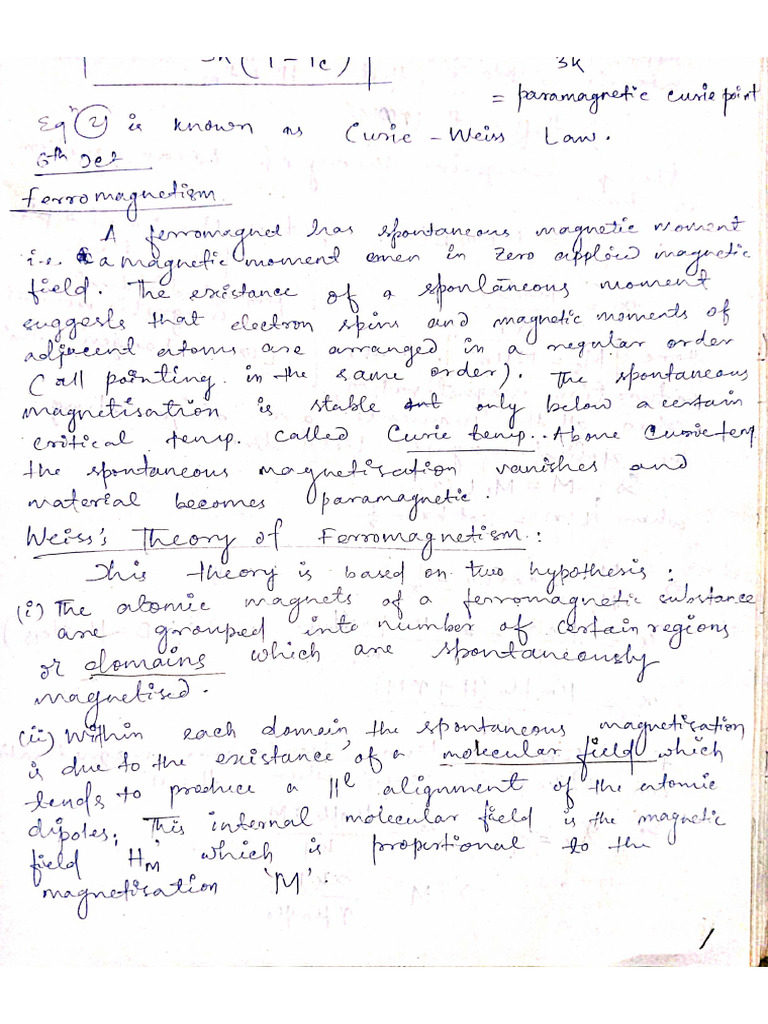 3K(T-Tc) 3K
= paramagnetic curie point
Eqⁿ (2) is known as Curie-Weiss Law.
Ferromagnetism
A ferromagnet has spontaneous magnetic moment
i.e. a magnetic moment even in zero applied magnetic
field. The existance of a spontaneous moment
suggests that electron spins and magnetic moments of
adjacent atoms are arranged in a regular order
(all pointing in the same order). The spontaneous
magnetisation is stable only below a certain
critical temp. called Curie temp.. Above Curie temp
the spontaneous magnetisation vanishes and
material becomes paramagnetic.
Weiss's Theory of Ferromagnetism:
This theory is based on two hypothesis:
(i) The atomic magnets of a ferromagnetic substance
are grouped into number of certain regions
or domains which are spontaneously
magnetised.
(ii) Within each domain, the spontaneous magnetisation
is due to the existance of a molecular field which
tends to produce a ||el alignment of the atomic
dipoles; This internal molecular field is the magnetic
field 'HM' which is propertional to the
magnetisation 'M'.